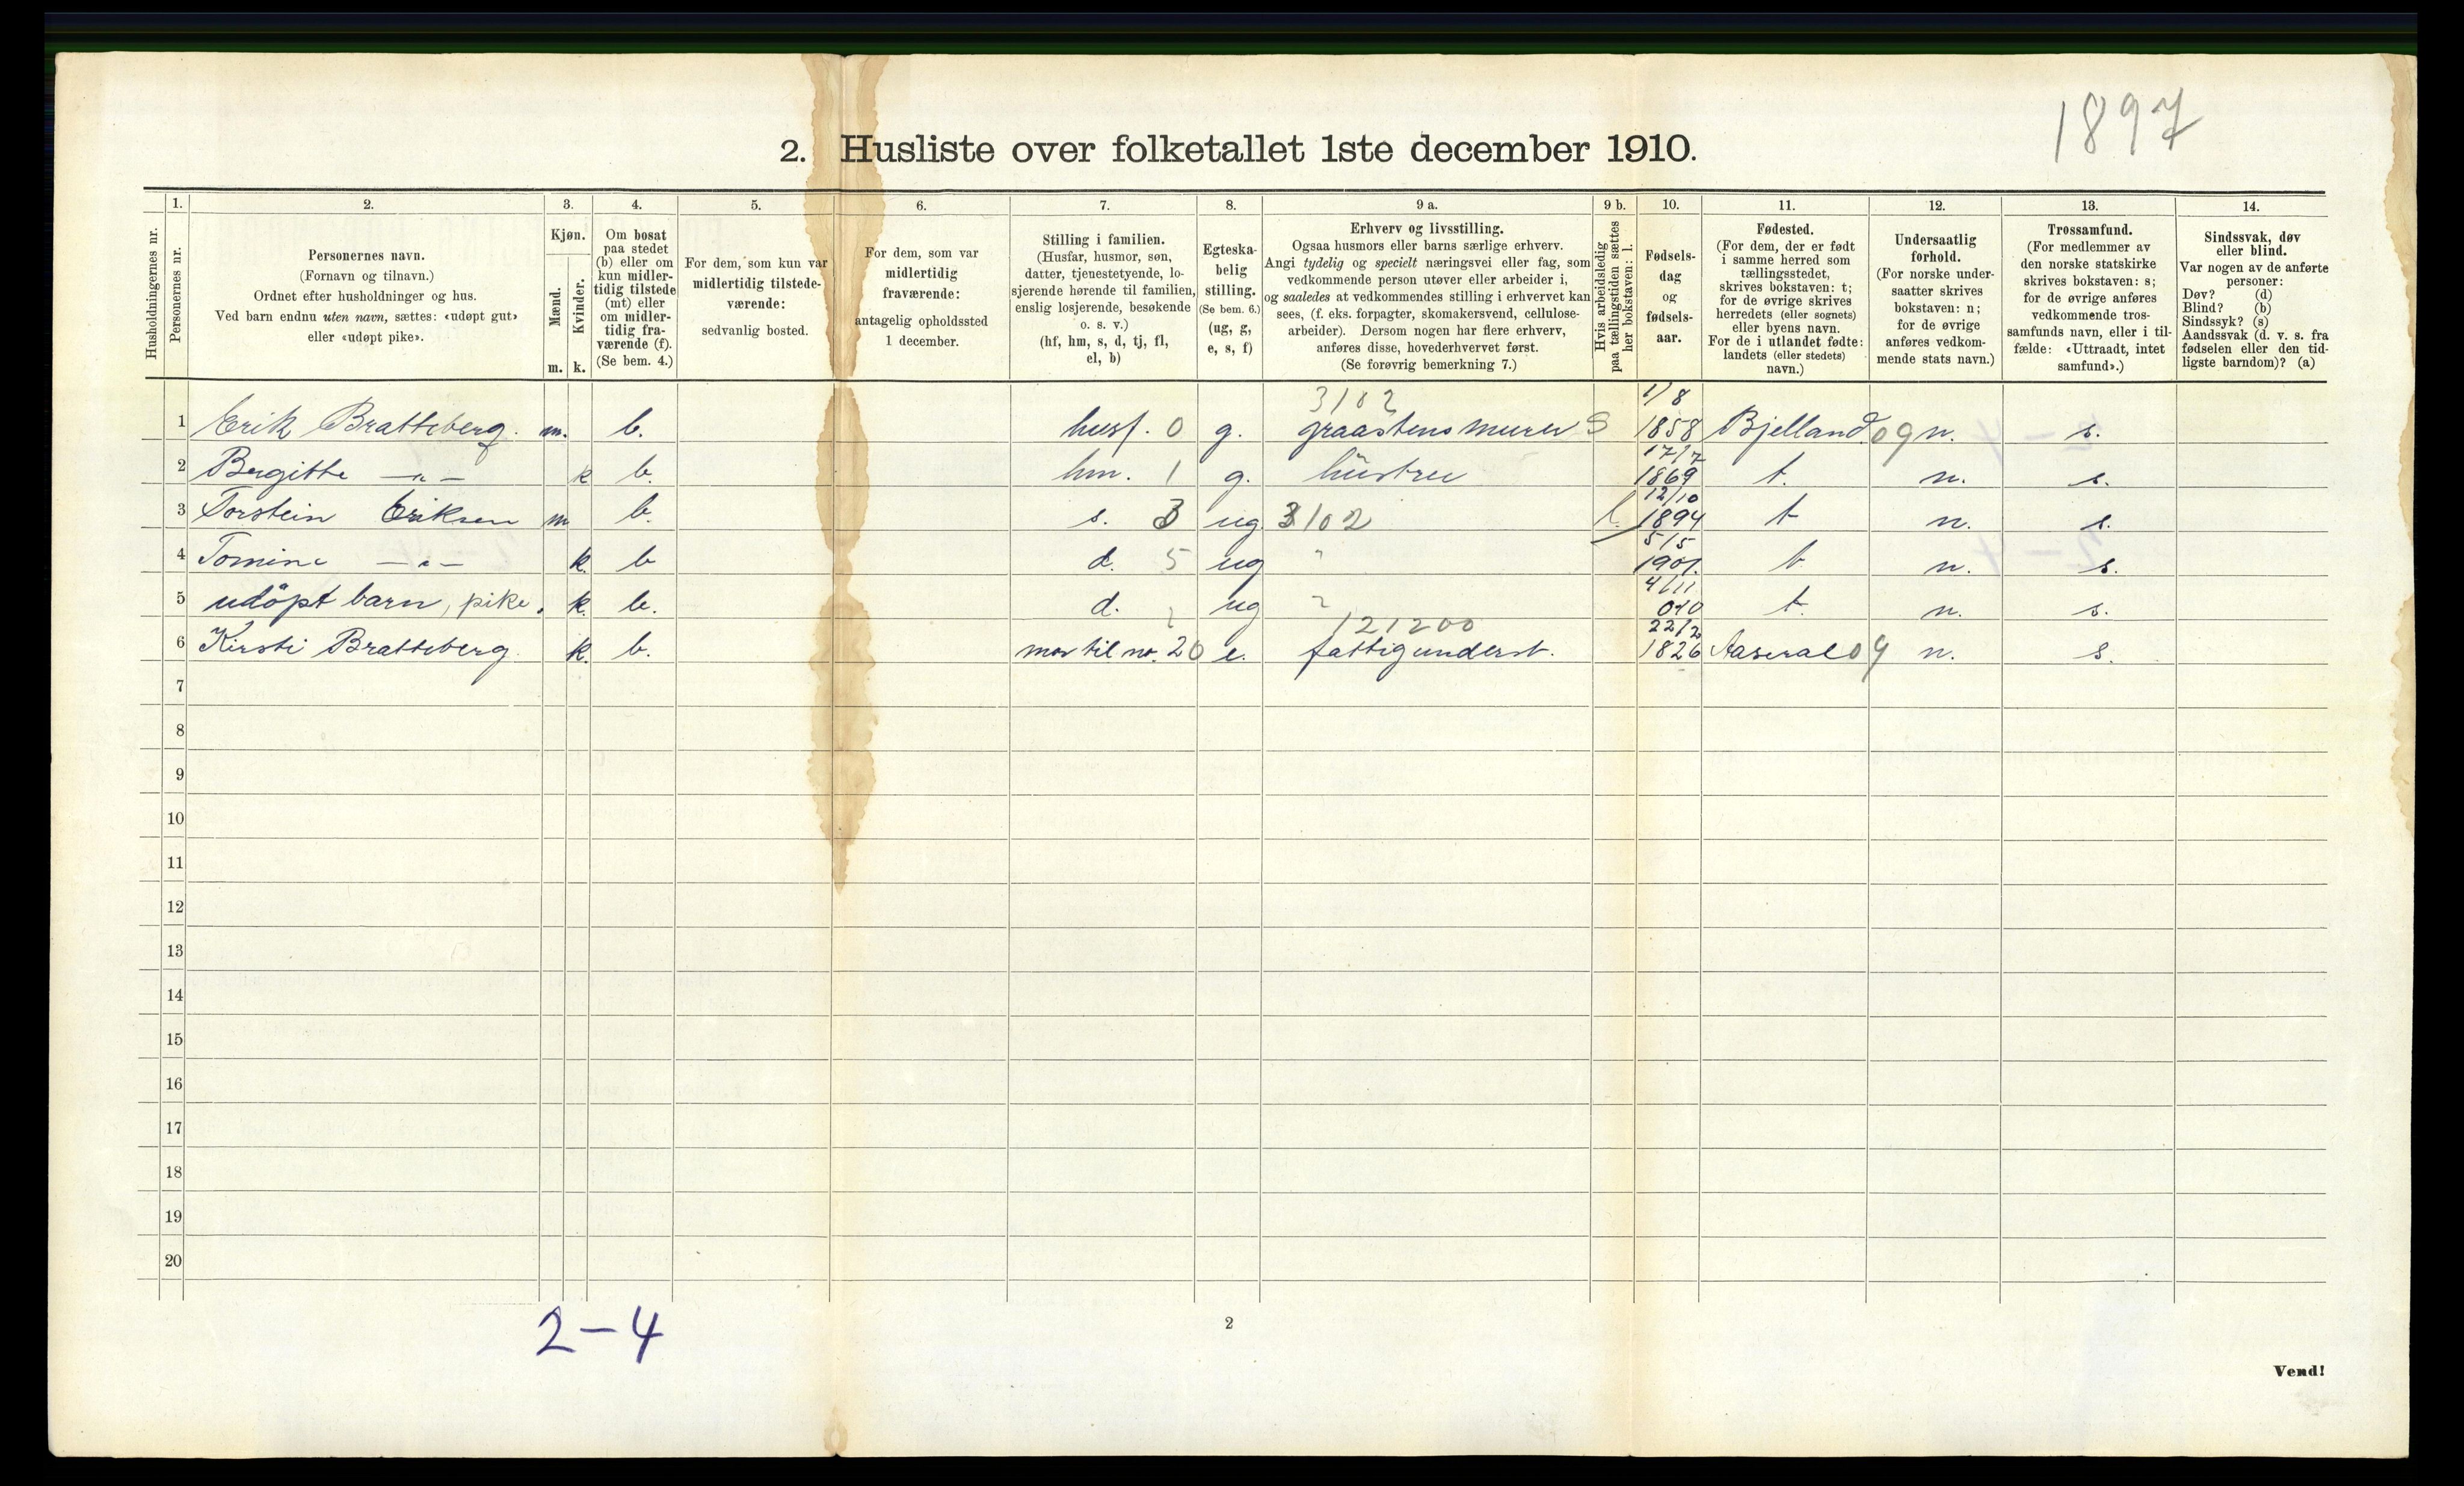 1897
2. Husliste over folketallet 1ste december 1910.
1. 2. 3. 4. 5. 6. 7. 8. 9 a. 9 b. 10. 11. 12. 13. 14.
Husholdningernes nr.
Personernes nr.
Personernes navn.
(Fornavn og tilnavn.)
Ordnet efter husholdninger og hus.
Ved barn endnu uten navn, sættes: «udøpt gut»
eller «udøpt pike».
Kjøn.
Mænd.
Kvinder.
m. k.
Om bosat
paa stedet
(b) eller om
kun midler-
tidig tilstede
(mt) eller
om midler-
tidig fra-
værende (f).
(Se bem. 4.)
For dem, som kun var
midlertidig tilstede-
værende:
sedvanlig bosted.
For dem, som var
midlertidig
fraværende:
antagelig opholdssted
1 december.
Stilling i familien.
(Husfar, husmor, søn,
datter, tjenestetyende, lo-
sjerende hørende til familien,
enslig losjerende, besøkende
o. s. v.)
(hf, hm, s, d, tj, fl,
el, b)
Egteska-
belig
stilling.
(Se bem. 6.)
(ug, g,
e, s, f)
Erhverv og livsstilling.
Ogsaa husmors eller barns særlige erhverv.
Angi tydelig og specielt næringsvei eller fag, som
vedkommende person utøver eller arbeider i,
og saaledes at vedkommendes stilling i erhvervet kan
sees, (f. eks. forpagter, skomakersvend, cellulose-
arbeider). Dersom nogen har flere erhverv,
anføres disse, hovederhvervet først.
(Se forøvrig bemerkning 7.)
Hvis arbeidsledig
paa tællingstiden sættes
her bokstaven: l.
Fødsels-
dag
og
fødsels-
aar.
Fødested.
(For dem, der er født
i samme herred som
tællingsstedet,
skrives bokstaven: t;
for de øvrige skrives
herredets (eller sognets)
eller byens navn.
For de i utlandet fødte:
landets (eller stedets)
navn.)
Undersaatlig
forhold.
(For norske under-
saatter skrives
bokstaven: n;
for de øvrige
anføres vedkom-
mende stats navn.)
Trossamfund.
(For medlemmer av
den norske statskirke
skrives bokstaven: s;
for de øvrige anføres
vedkommende tros-
samfunds navn, eller i til-
fælde: «Uttraadt, intet
samfund».)
Sindssvak, døv
eller blind.
Var nogen av de anførte
personer:
Døv? (d)
Blind? (b)
Sindssyk? (s)
Aandssvak (d. v. s. fra
fødselen eller den tid-
ligste barndom)? (a)
3102 1/8
1 Erik Bratteberg. m. b. husf. 0 g. graastensmurer S 1858 Bjelland 09 n. s.
17/7
2 Bergitte —"— k b. hm. 1 g. hustru 1869 t. n. s.
12/10
3 Torstein Eriksen m b. s. 3 ug 3102 l. 1894 t n. s.
5/5
4 Tomine —"— k. b d. 5 ug " 1901. t n. s.
4/11
5 udöpt barn, pike. k. b. d. ug 010 t. n. s.
121200 22/2
6 Kirsti Bratteberg. k. b. mor til no. 2 0 e. fattigunderst. 1826 Aaseral 09 n. s.
7
8
9
10
11
12
13
14
15
16
17
18
19
20
2-4
2
Vend!